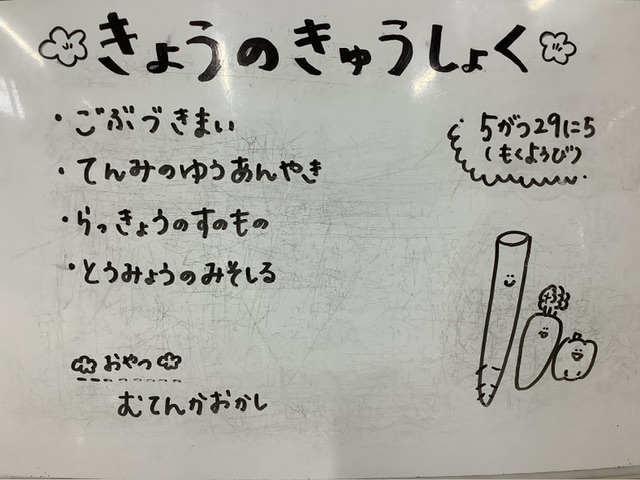 きょうのきゅうしょく
5がつ29にち
(もくようび)
・ごぶづきまい
・てんみのゆうあんやき
・らっきょうのすのもの
・とうみょうのみそしる
おやつ
むてんかおかし